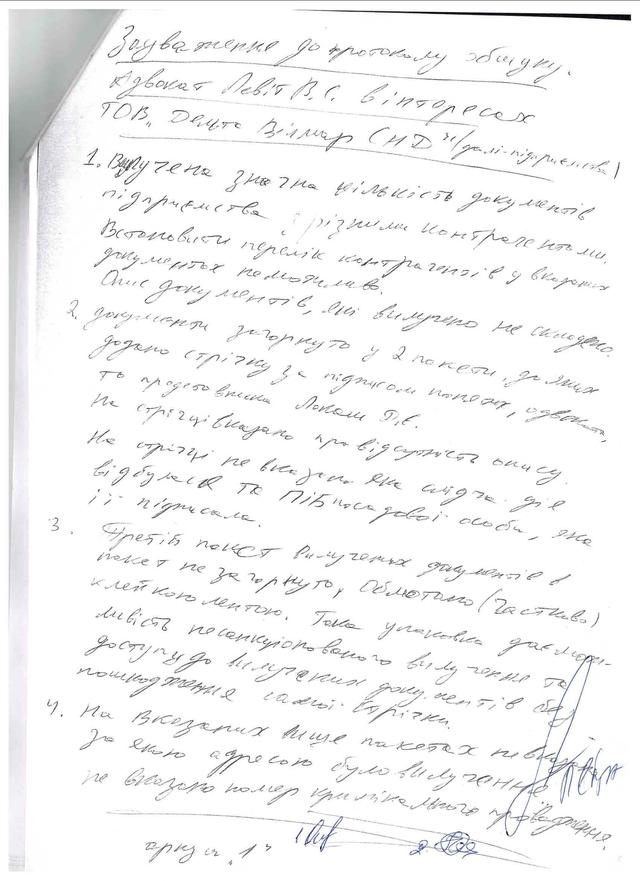 Зауваження до протоколу обшуку.
Адвокат Левіт В.С. в інтересах
ТОВ „Дельта Вілмар СНД" (далі-підприємства)
1. Вилучена значна кількість документів
підприємства з різними контрагентами.
Встановити перелік контрагентів у вказаних
документах неможливо.
Опис документів, які вилучено не складено.
2. Документи загорнуто у 2 пакети, до яких
додано стрічку за підписом понятих, адвоката,
та представника
На стрічці вказано про відсутність опису.
На стрічці не вказано яка слідча дія
відбулася та ПІБ посадової особи, яка
її підписала.
3. Третій пакет вилучених документів в
пакет не загорнуто, обмотано (частково)
клейкою лентою. Така упаковка дає мож-
ливість несанкціонованого вилучення та
доступу до вилучених документів без
пошкодження самої стрічки.
4. На вказаних вище пакетах не вказано
за якою адресою було вилучення
не вказано номер кримінального провадження.
аркуш „1"